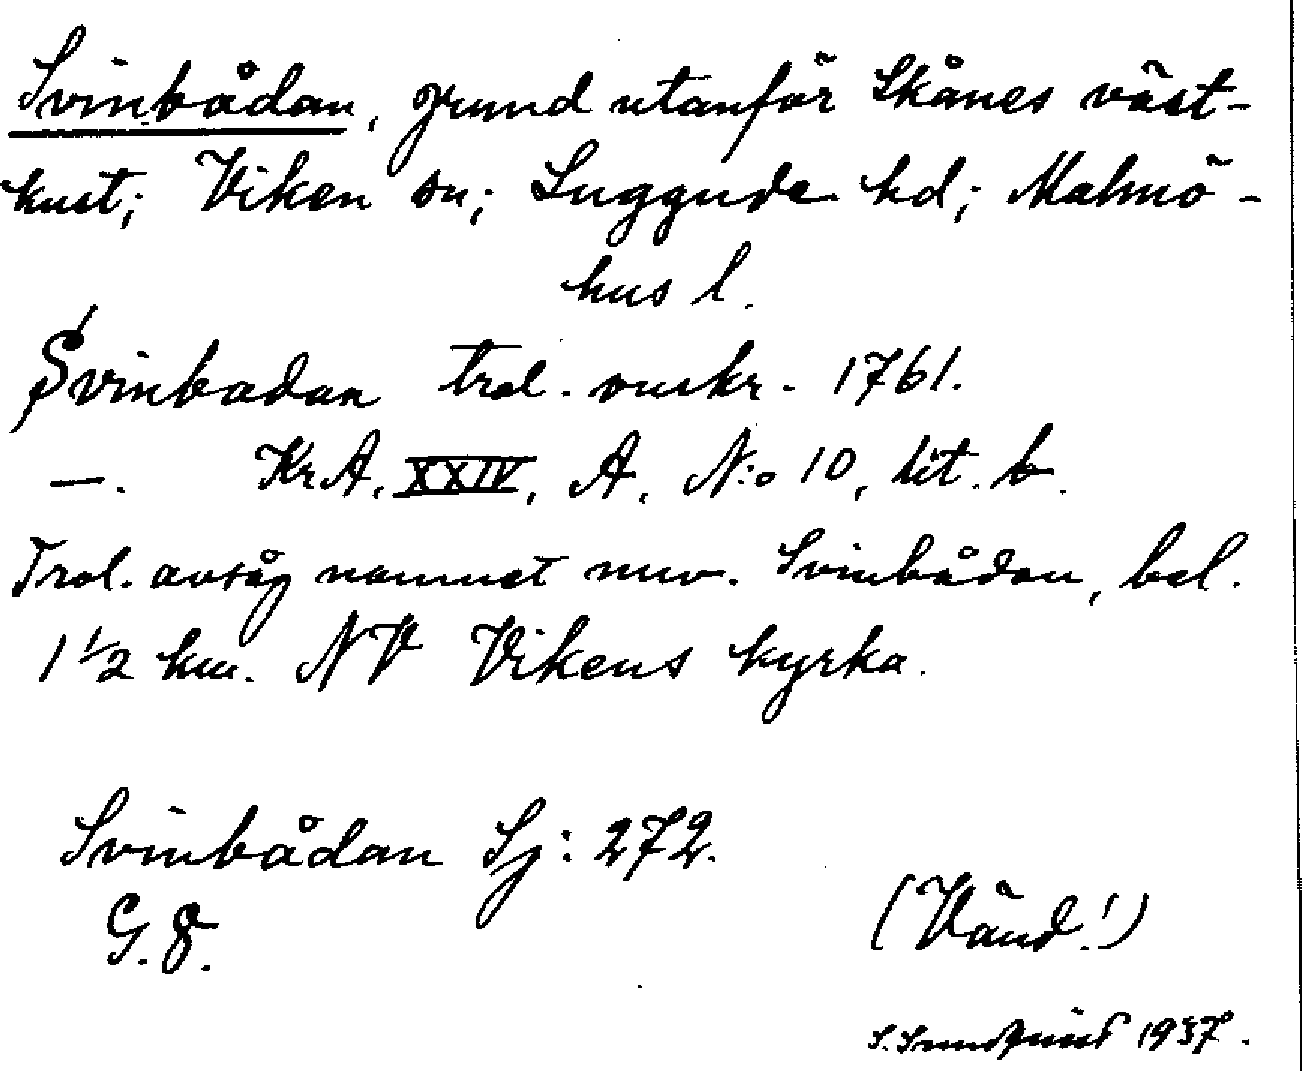 Svinbådan, grund utanför Skånes väst-
kust; Viken sn; Luggude hd; Malmö-
hus l.
Svinbadan trol. omkr. 1761.
—. Kr.A. XXIV, A, N:o 10, lit. b.
Trol. avsåg namnet nuv. Svinbådan, bel.
1 1/2 km. NV Vikens kyrka.
Svinbådan Sj: 272.
G. F.
(Vänd!)
S. Sundquist 1937.